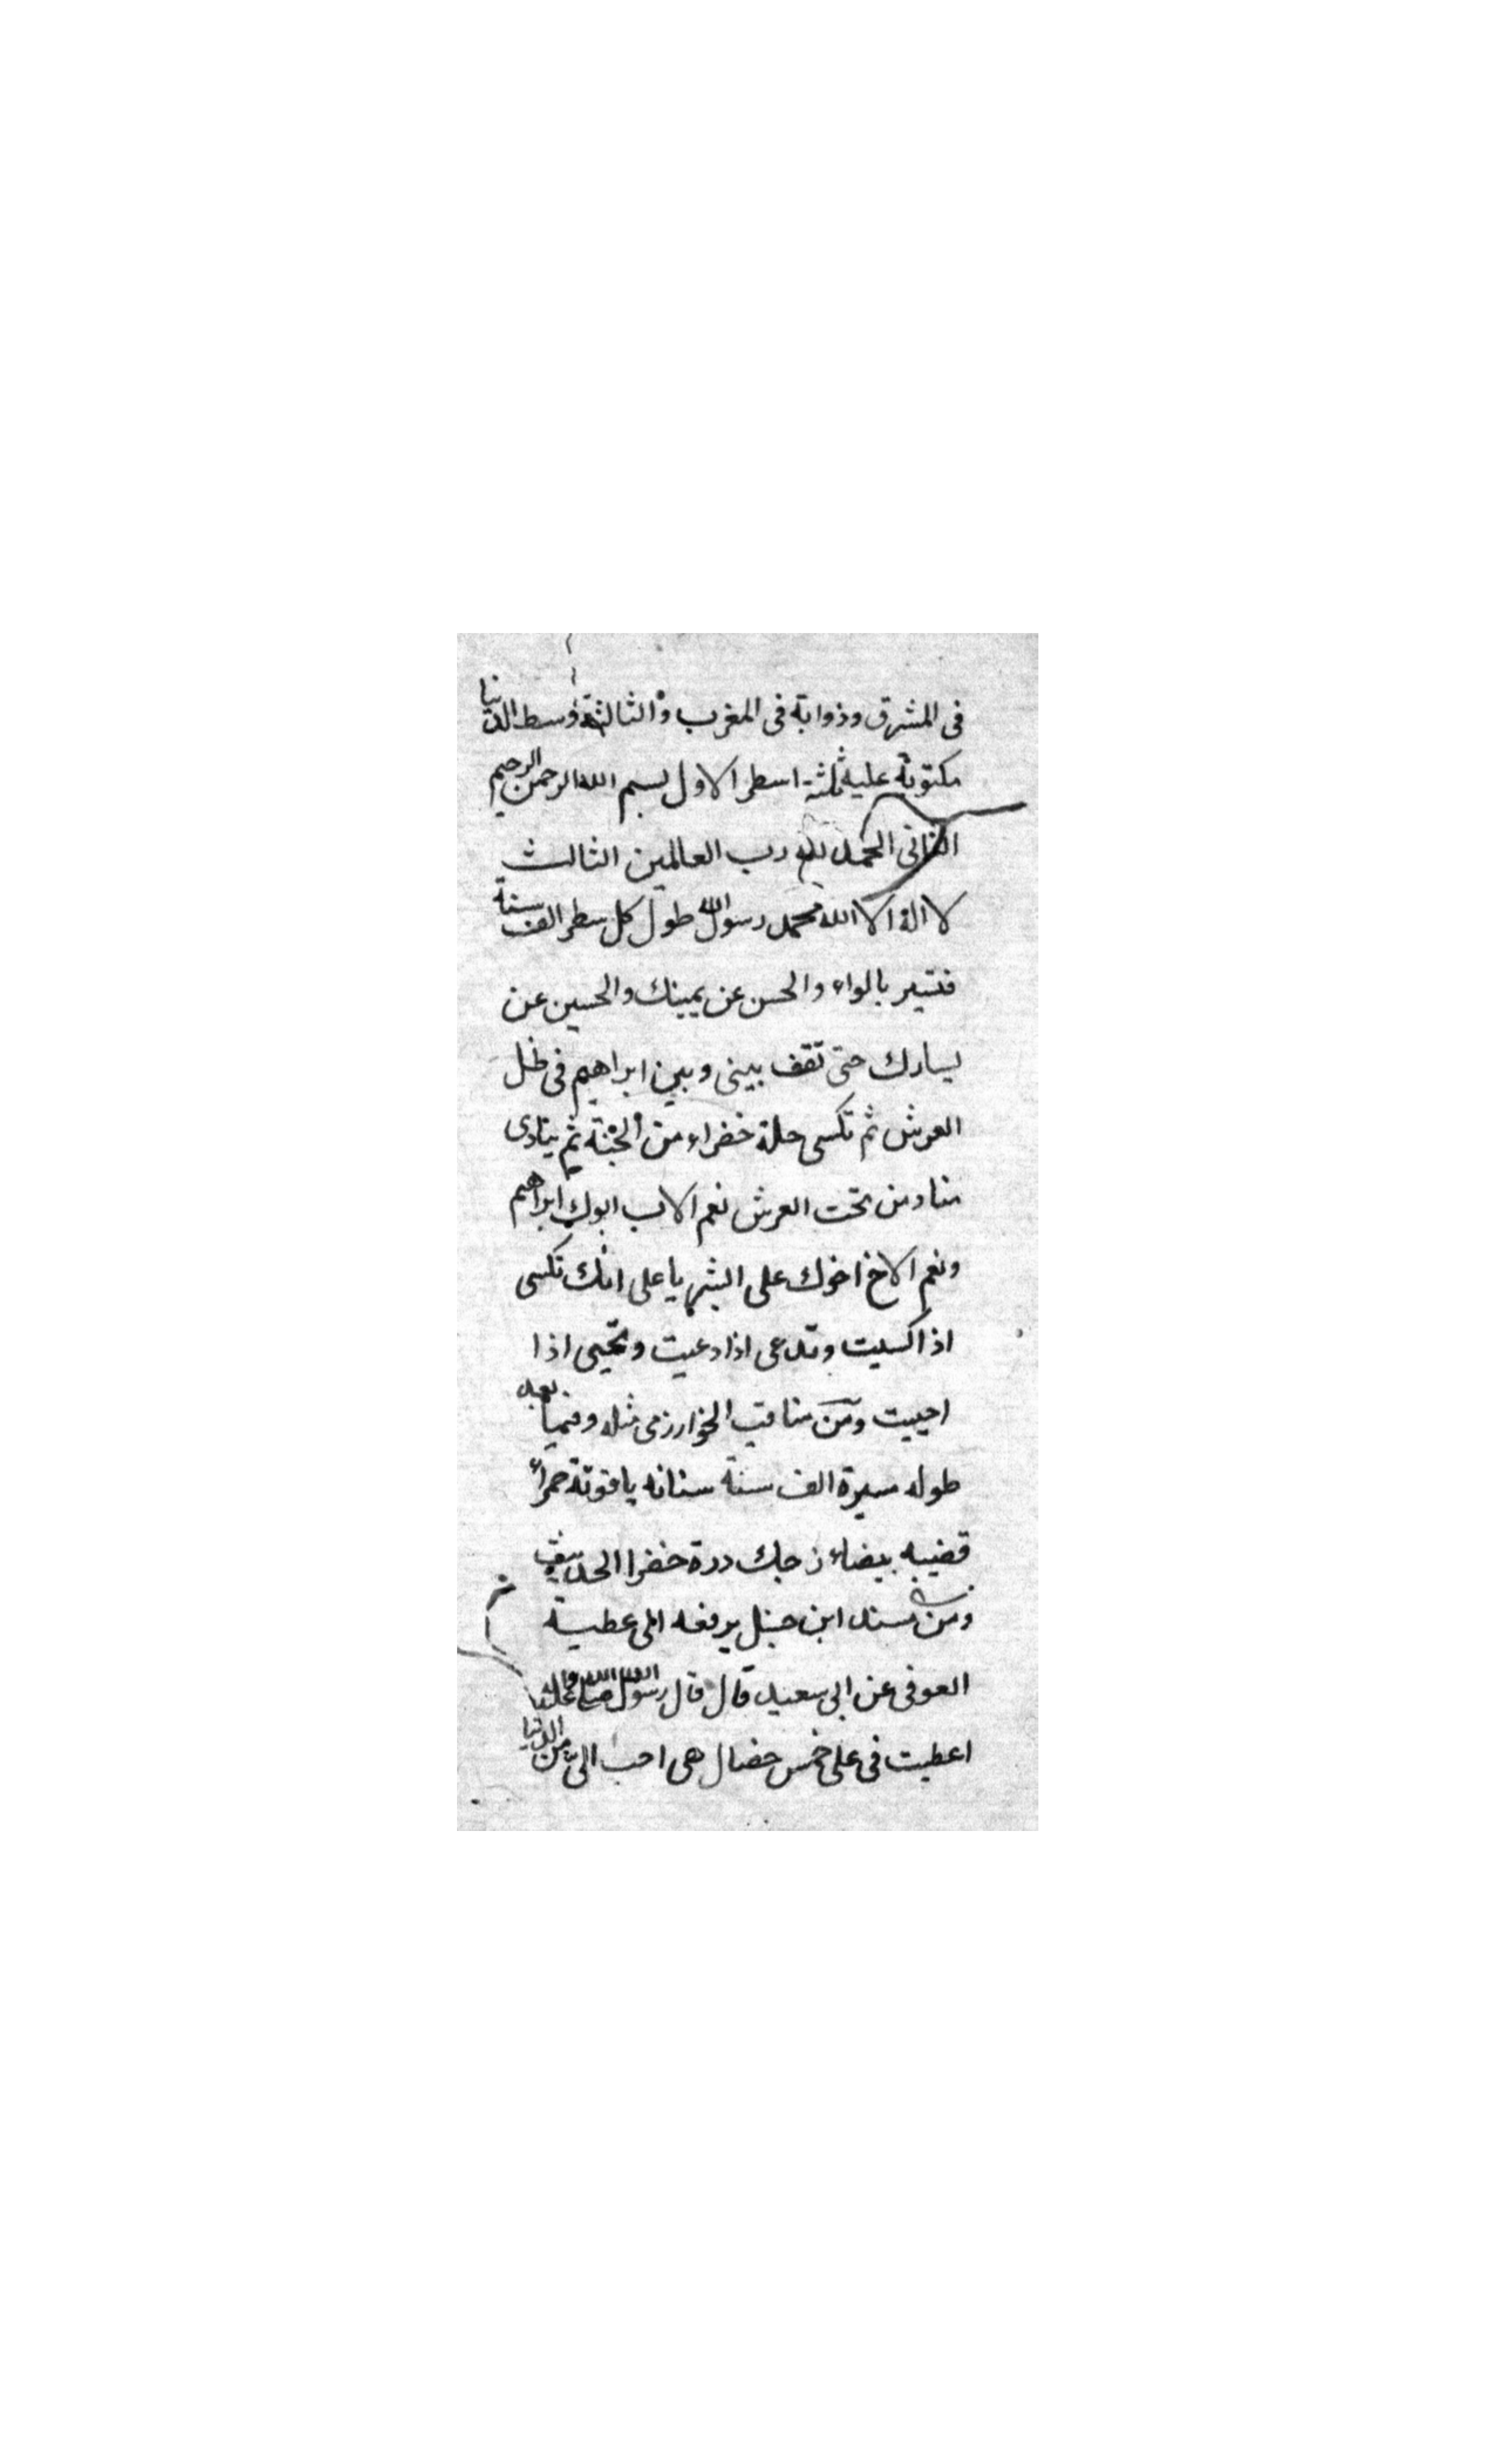 في المشرق وذوابة في المغرب والثالثة وسط الدنيا
مكتوبة عليه ثلثة اسطر الاول بسم الله الرحمن الرحيم
الثاني الحمد لله رب العالمين الثالث
لا اله الا الله محمد رسول الله طول كل سطر الف سنة
فتسير بالواء والحسن عن يمينك والحسين عن
يسارك حتى تقف بيني وبين ابراهيم في ظل
العرش ثم تكسى حلة خضراء من الجنة ثم ينادى
مناد من تحت العرش نعم الاب ابوك ابراهيم
ونعم الاخ اخوك على ابشر يا على انك تكسى
اذا كسيت وتدعى اذا دعيت وتحيى اذا
احييت ومن مناقب الخوارزمى مثله وفيها بعد
طوله مسيرة الف سنة سنانه ياقوتة حمراء
قضيبه بيضاء زجك درة خضرا الحديث
ومن مسند ابن حنبل يرفعه الى عطية
العوفى عن ابى سعيد قال قال رسول الله صلى الله عليه
اعطيت فى على خمس خصال هى احب الىّ من الدنيا